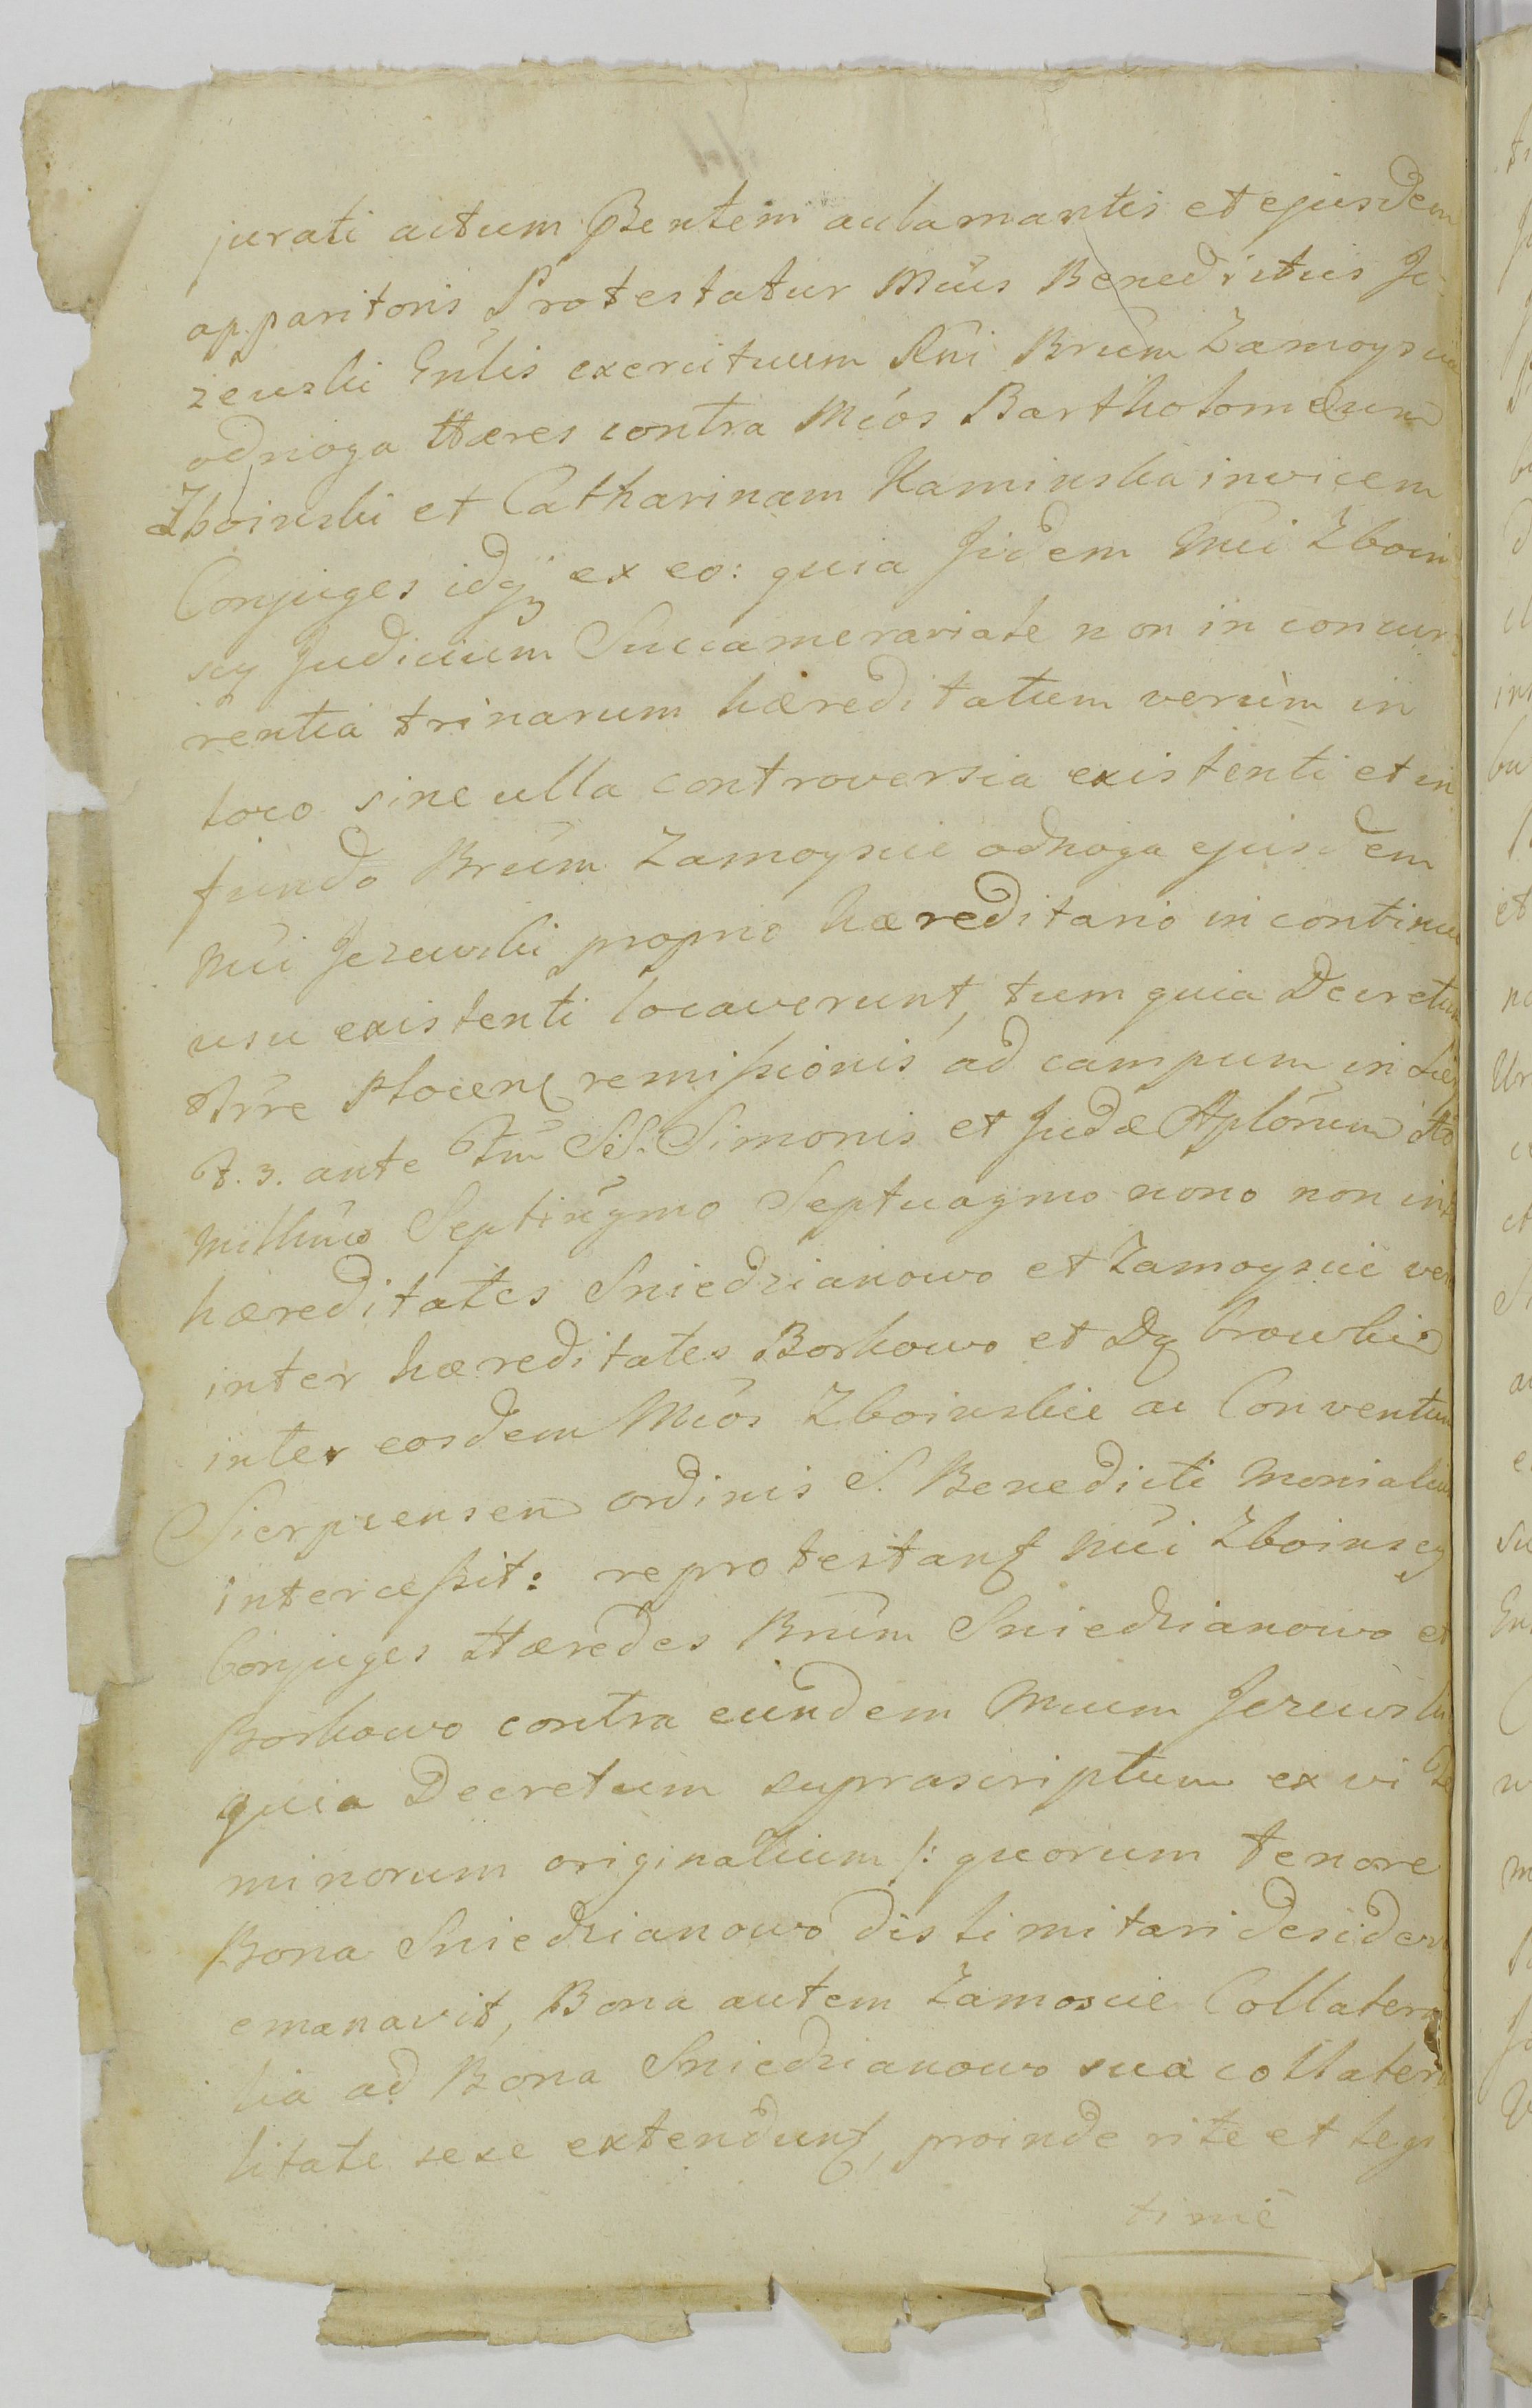 jurati actum Pñtem aclamantis et ejusdem
apparitoris Protestatur Mćus Benedictus Je
zewski Gnlis exercituum Rni Brum Zamoysc
odnoga Hæres contra Mćos Bartholomæum
Zboinski et Catharinam Kaminska invicem
Conjuges idq ex eo: quia Jidem Mći Zboin
scy Judicium Succamerariale non in concur
rentia trinarum hæreditatum verùm in
loco sine ulla controversia existenti et in
fundo Brum Zamoyscie odnoga ejusdem
Mći Jezewski proprio hæreditario in continuo
usu existenti locaverunt, tum quia Decretum
Trre Plocen remissionis ad campum in
F. 3. ante Ftm SS. Simonis et Judæ Aplorum
Millmo Septingmo Septuagmo nono non int
hæreditates Sniedzianowo et Zamoyscie ver
inter hæreditates Borkowo et Dąbrowki
inter eosdem Mćos Zboinskie ac Conventum
Sierpcensem ordinis S. Benedicti Monialium
intercessit: reprotestant Mći Zboinscy
Conjuges Hæredes Brum Sniedzianowo et
Borkowo contra eundem Mcum Jezewski
quia Decretum suprascriptum ex vi Te
minorum originalium /: quorum tenore
Bona Sniedzianowo dislimitari desider
emanavit, Bona autem Zamoscie Collatera
lia ad Bona Sniedzianowo sua collatera
litate sese extendunt, proinde rite et legi
time